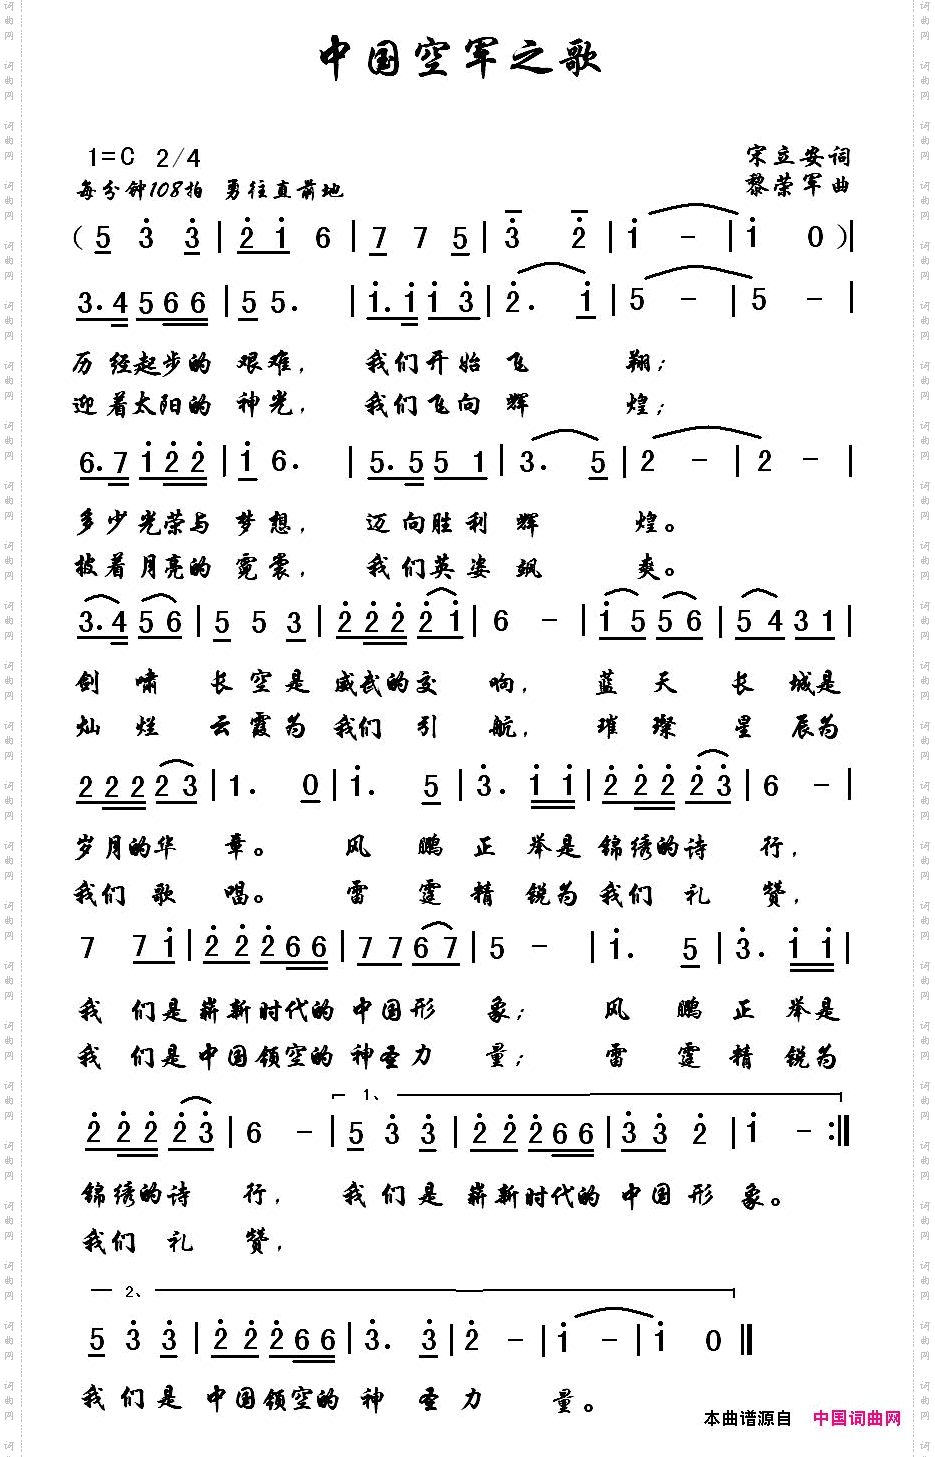 中国空军之歌
1=C 2/4
宋立安词
每分钟108拍 勇往直前地
黎荣军曲
(5 3 3 | 2 1 6 | 7 7 5 | 3 2 | 1 - | 1 0 )|
3. 4 5 6 6 | 5 5. | 1. 1 1 3 | 2. 1 | 5 - | 5 - |
历经起步的 艰难， 我们开始飞 翔；
迎着太阳的 神光， 我们飞向辉 煌；
6. 7 1 2 2 | 1 6. | 5. 5 5 1 | 3. 5 | 2 - | 2 - |
多少光荣与 梦想， 迈向胜利辉 煌。
披着月亮的 霓裳， 我们英姿飒 爽。
3. 4 5 6 | 5 5 3 | 2 2 2 2 1 | 6 - | 1 5 5 6 | 5 4 3 1 |
剑啸 长空是 威武的交 响， 蓝天 长城是
灿烂 云霞为 我们引 航， 璀璨 星辰为
2 2 2 2 3 | 1. 0 | 1. 5 | 3. 1 1 | 2 2 2 2 3 | 6 - |
岁月的华 章。 风鹏正举是 锦绣的诗 行，
我们歌 唱。 雷霆精锐为 我们礼 赞，
7 7 1 | 2 2 2 6 6 | 7 7 6 7 | 5 - | 1. 5 | 3. 1 1 |
我们是 崭新时代的 中国形 象； 风鹏正举是
我们是 中国领空的 神圣力 量； 雷霆精锐为
1、
2 2 2 2 3 | 6 - | 5 3 3 | 2 2 2 6 6 | 3 3 2 | 1 - :||
锦绣的诗 行， 我们是 崭新时代的 中国形 象。
我们礼 赞，
2、
5 3 3 | 2 2 2 6 6 | 3. 3 | 2 - | 1 - | 1 0 ||
我们是 中国领空的 神 圣力 量。
本曲谱源自 中国词曲网